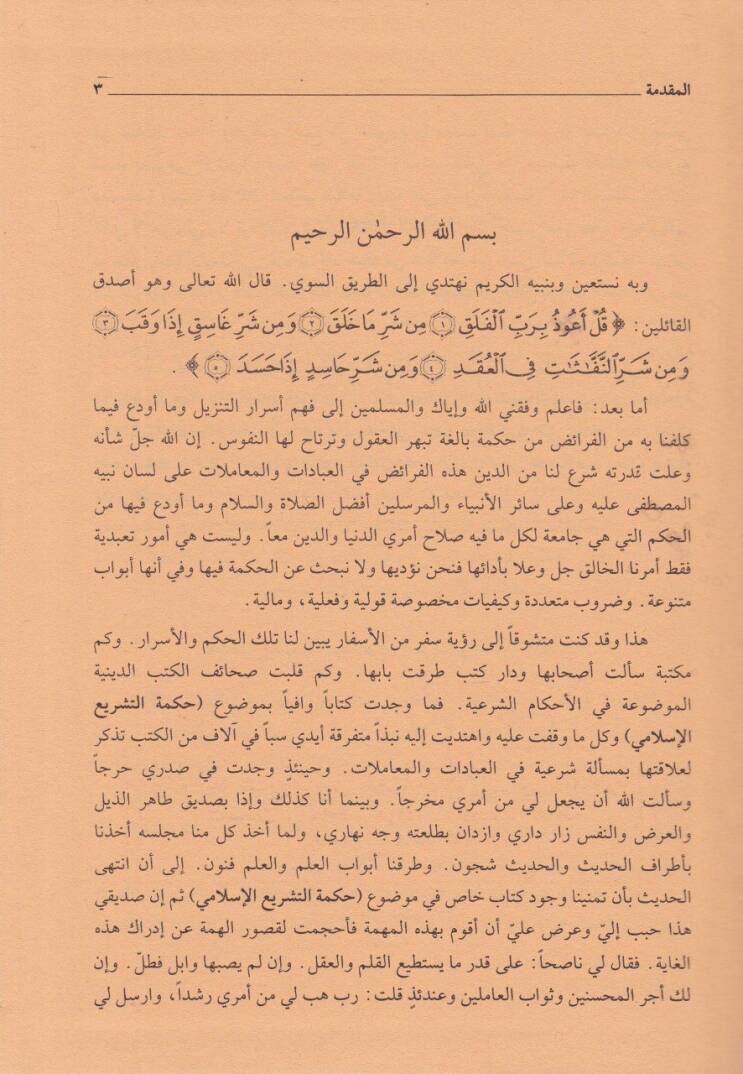 المقدمة ٣
بسم الله الرحمٰن الرحيم
وبه نستعين وبنبيه الكريم نهتدي إلى الطريق السوي. قال الله تعالى وهو أصدق
القائلين: ﴿قُلْ أَعُوذُ بِرَبِّ ٱلْفَلَقِ ۝١ مِن شَرِّ مَا خَلَقَ ۝٢ وَمِن شَرِّ غَاسِقٍ إِذَا وَقَبَ ۝٣
وَمِن شَرِّ ٱلنَّفَّٰثَٰتِ فِي ٱلْعُقَدِ ۝٤ وَمِن شَرِّ حَاسِدٍ إِذَا حَسَدَ ۝٥﴾.
أما بعد: فاعلم وفقني الله وإياك والمسلمين إلى فهم أسرار التنزيل وما أودع فيما
كلفنا به من الفرائض من حكمة بالغة تبهر العقول وترتاح لها النفوس. إن الله جلّ شأنه
وعلت قدرته شرع لنا من الدين هذه الفرائض في العبادات والمعاملات على لسان نبيه
المصطفى عليه وعلى سائر الأنبياء والمرسلين أفضل الصلاة والسلام وما أودع فيها من
الحكم التي هي جامعة لكل ما فيه صلاح أمري الدنيا والدين معاً. وليست هي أمور تعبدية
فقط أمرنا الخالق جل وعلا بأدائها فنحن نؤديها ولا نبحث عن الحكمة فيها وفي أنها أبواب
متنوعة. وضروب متعددة وكيفيات مخصوصة قولية وفعلية، ومالية.
هذا وقد كنت متشوقاً إلى رؤية سفر من الأسفار يبين لنا تلك الحكم والأسرار. وكم
مكتبة سألت أصحابها ودار كتب طرقت بابها. وكم قلبت صحائف الكتب الدينية
الموضوعة في الأحكام الشرعية. فما وجدت كتاباً وافياً بموضوع (حكمة التشريع
الإسلامي) وكل ما وقفت عليه واهتديت إليه نبذاً متفرقة أيدي سباً في آلاف من الكتب تذكر
لعلاقتها بمسألة شرعية في العبادات والمعاملات. وحينئذٍ وجدت في صدري حرجاً
وسألت الله أن يجعل لي من أمري مخرجاً. وبينما أنا كذلك وإذا بصديق طاهر الذيل
والعرض والنفس زار داري وازدان بطلعته وجه نهاري، ولما أخذ كل منا مجلسه أخذنا
بأطراف الحديث والحديث شجون. وطرقنا أبواب العلم والعلم فنون. إلى أن انتهى
الحديث بأن تمنينا وجود كتاب خاص في موضوع (حكمة التشريع الإسلامي) ثم إن صديقي
هذا حبب إليّ وعرض عليّ أن أقوم بهذه المهمة فأحجمت لقصور الهمة عن إدراك هذه
الغاية. فقال لي ناصحاً: على قدر ما يستطيع القلم والعقل. وإن لم يصبها وابل فطلّ. وإن
لك أجر المحسنين وثواب العاملين وعندئذٍ قلت: رب هب لي من أمري رشداً، وارسل لي